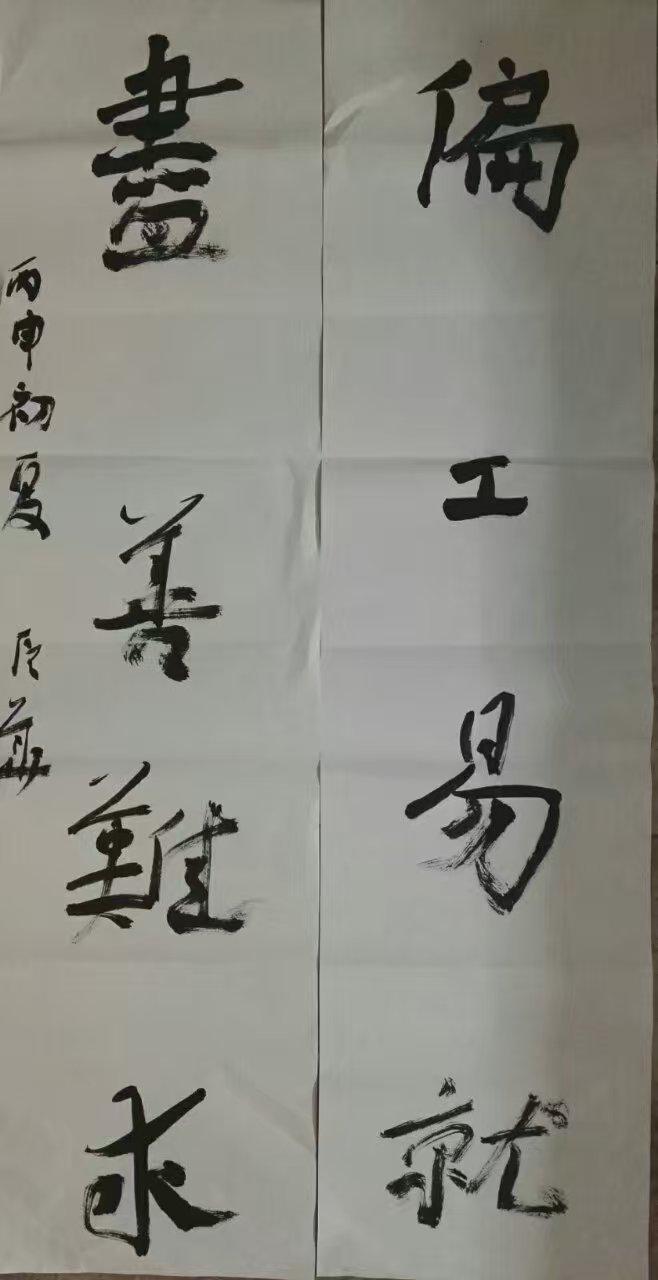 偏工易就
盡善難求
丙申初夏